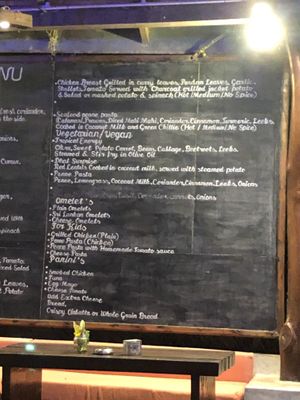 NU
• Chicken Breast Grilled in curry leaves, Pandon Leaves, Garlic
Shallots, Tomato Served with Charcoal grilled jacket potato
& Salad or mashed potato & spinach (Hot/Medium/No Spice)
• Seafood penne pasta
(Calamari, Prawns, Diced Mahi Mahi, Coriander, Cinnamon, Turmeric, Leeks
Cooked in Coconut Milk and Green Chillie (Hot / Medium/No Spice)
Vegetarian/Vegan
• Tropical Energy
Okra, Sweet Potato, Carrot, Bean, Cabbage, Beetroots, Leeks,
Steamed & Stir Fry in Olive Oil
• Dhal Surprise
Red Lentils Cooked in coconut milk, served with steamed potato
• Penne Pasta
Penne, Lemongrass, Coconut Milk, Coriander, Cinnamon, Leeks, Onions
Omelet's
• Plain Omelets
• Sri Lankan Omelets
• Cheese Omelets
For Kids
• Grilled Chicken (Plain)
• Penne Pasta (Chicken)
• Penne Pasta with Homemade Tomato sauce
• Cheese Pasta
Panini's
• Smoked Chicken
• Tuna
• Egg Mayo
• Cheese Tomato
Add Extra Cheese
Bread,
Crispy Ciabatta or Whole Grain Bread